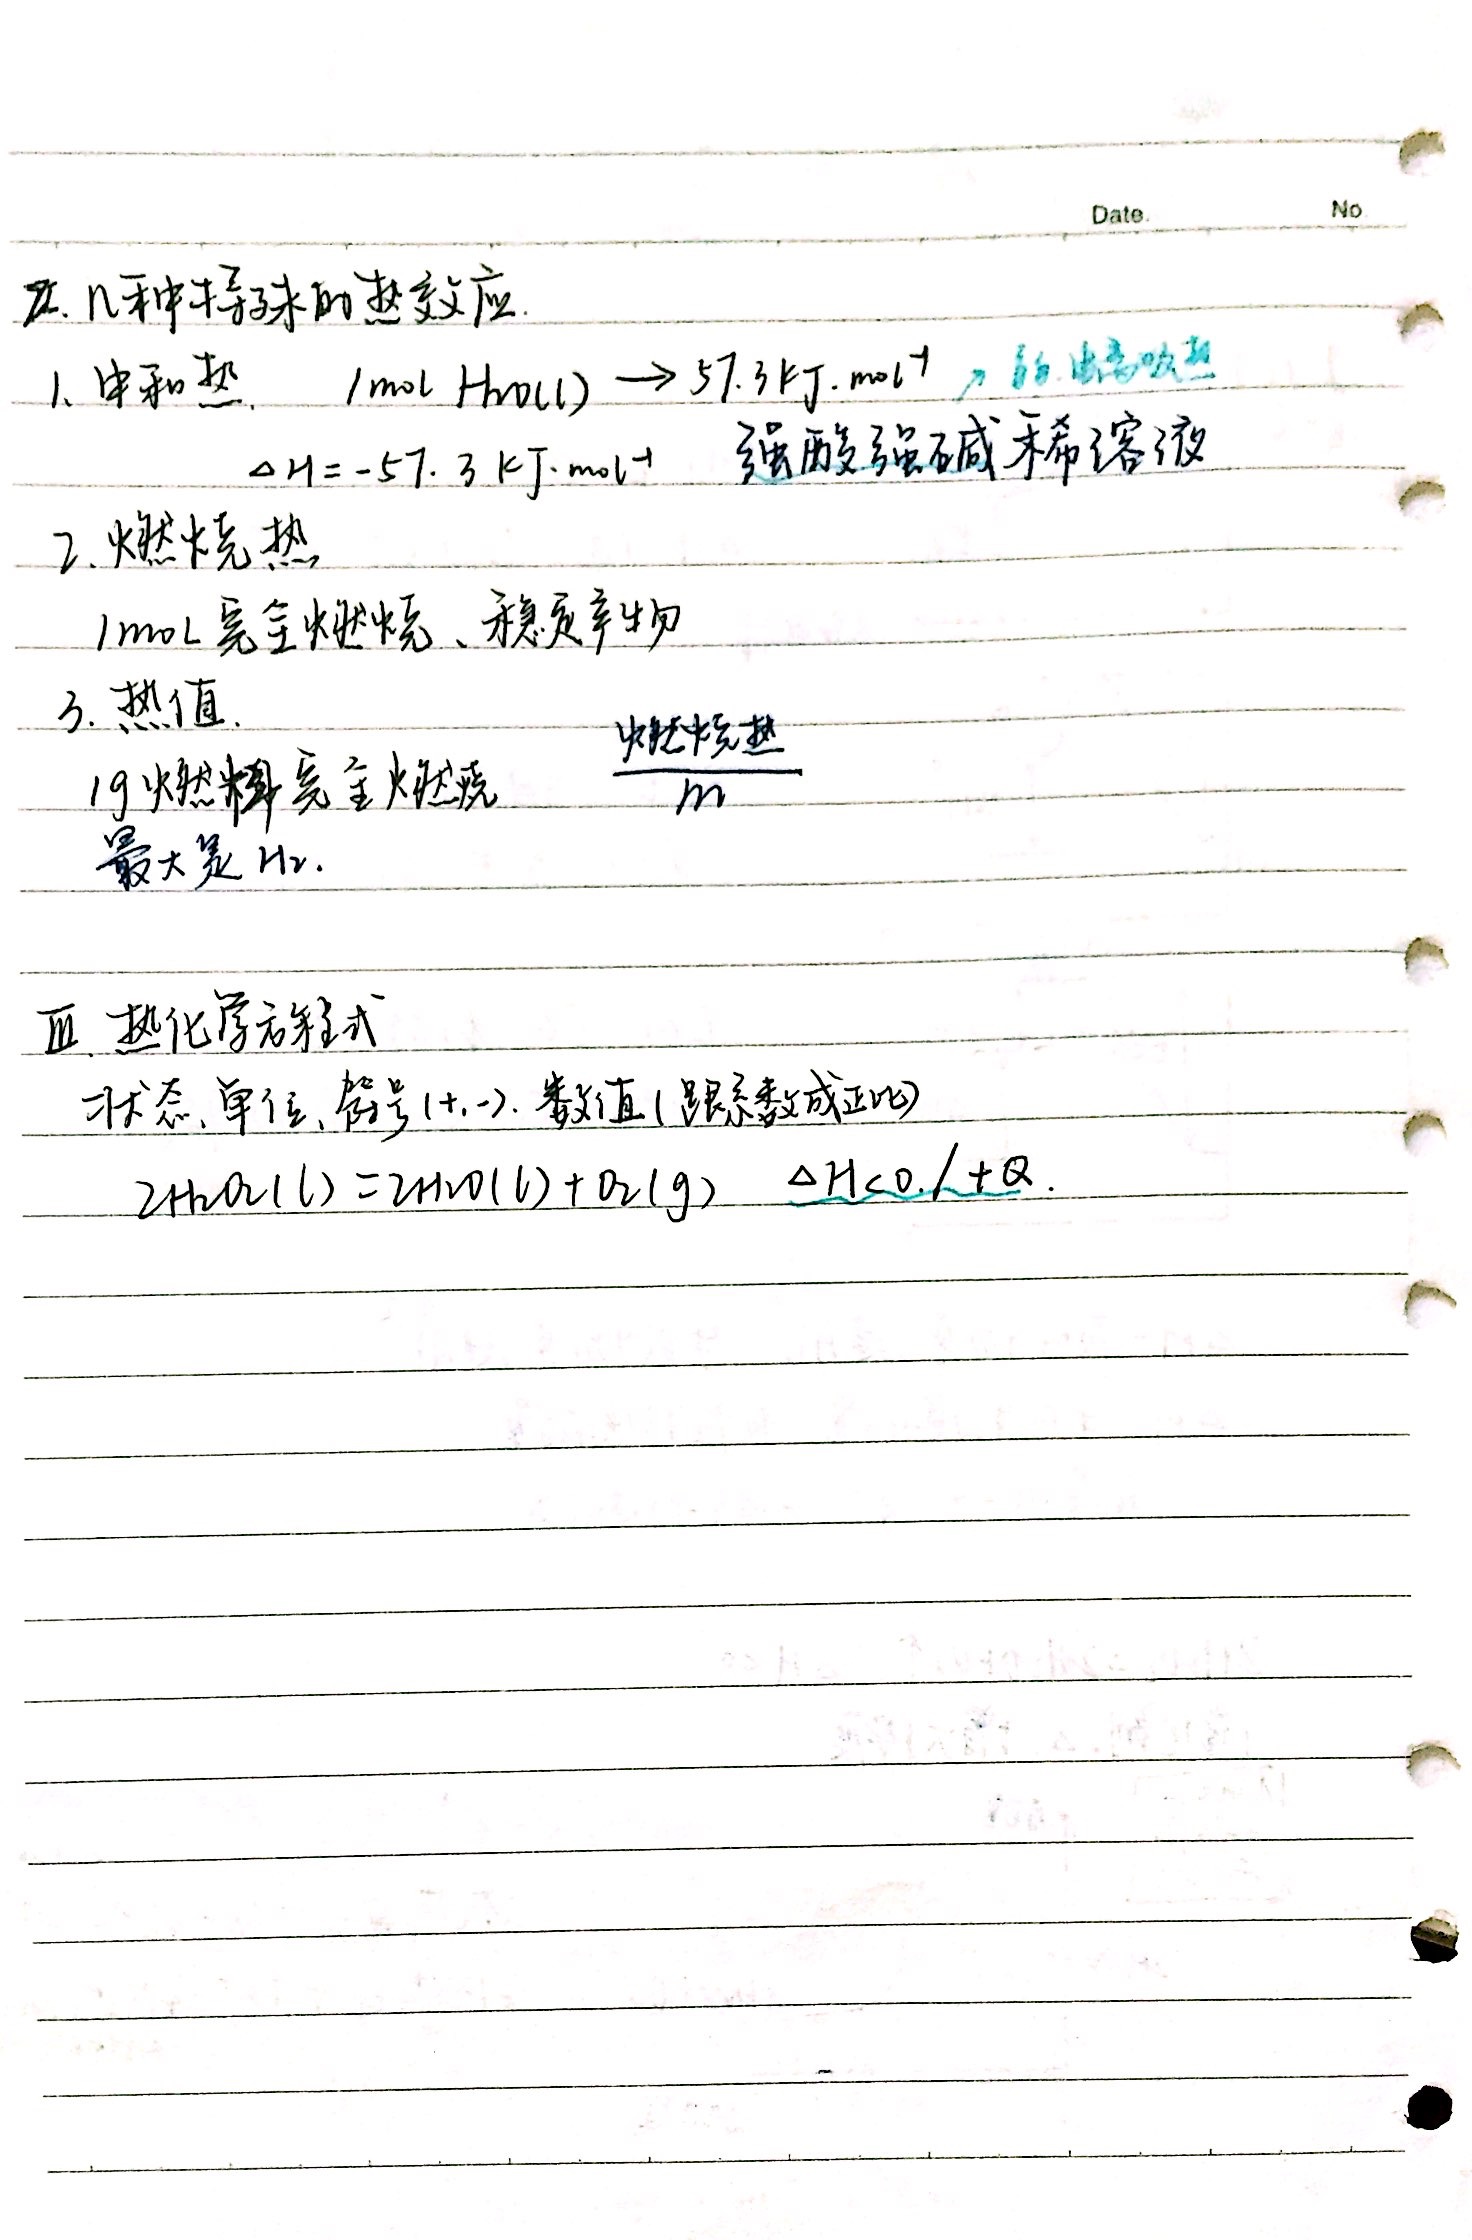 Date. No
II. 几种特殊的热效应.
1. 中和热. 1mol H2O(l) → 57.3kJ·mol⁻¹ ↗ 弱:电离吸热
△H=-57.3kJ·mol⁻¹ 强酸强碱稀溶液
2. 燃烧热
1mol 完全燃烧、稳定产物
3. 热值.
1g燃料完全燃烧 燃烧热/m
最大是H2.
III. 热化学方程式
状态、单位、符号(+,-). 数值(跟系数成正比)
2H2O2(l)=2H2O(l)+O2(g) △H<0./+Q.